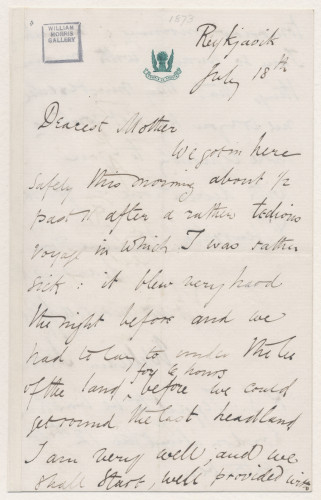 WILLIAM
MORRIS
GALLERY
1873
Reykjavik
July 18th
Dearest Mother
We got in here
safely this morning about 1/2
past 11 after a rather tedious
voyage in which I was rather
sick: it blew very hard
the night before and we
had to lay to under the lee
of the land for 6 hours before we could
get round the last headland
I am very well, and we
shall start, well provided with